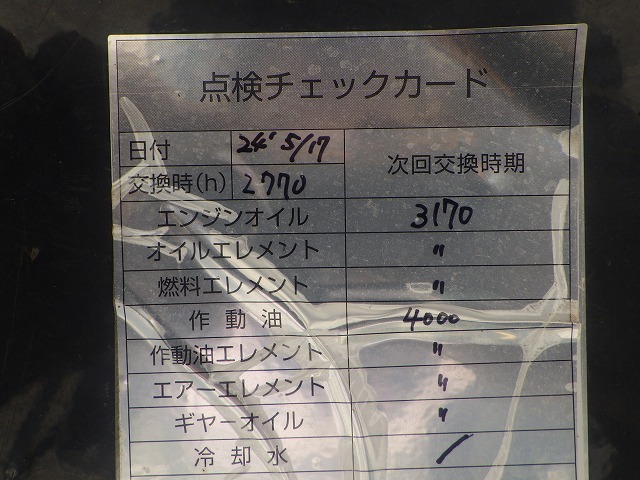 点検チェックカード
日付 24' 5/17 次回交換時期
交換時(h) 2770
エンジンオイル 3170
オイルエレメント 〃
燃料エレメント 〃
作動油 4000
作動油エレメント 〃
エアーエレメント 〃
ギヤーオイル 〃
冷却水 /